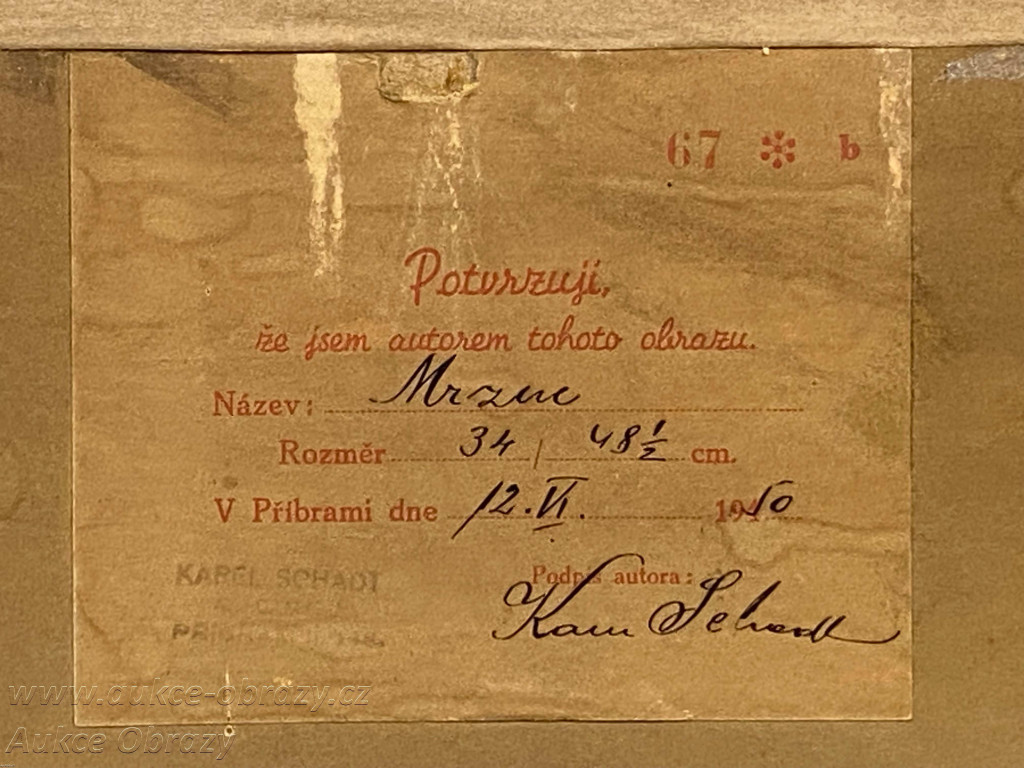 67 * b
Potvrzuji,
že jsem autorem tohoto obrazu.
Název:
Rozměr 34 / 48 1/2 cm.
V Příbrami dne 12. VI. 1950
Podpis autora:
KAREL SCHADT
Schadt
www.aukce-obrazy.cz
Aukce Obrazy